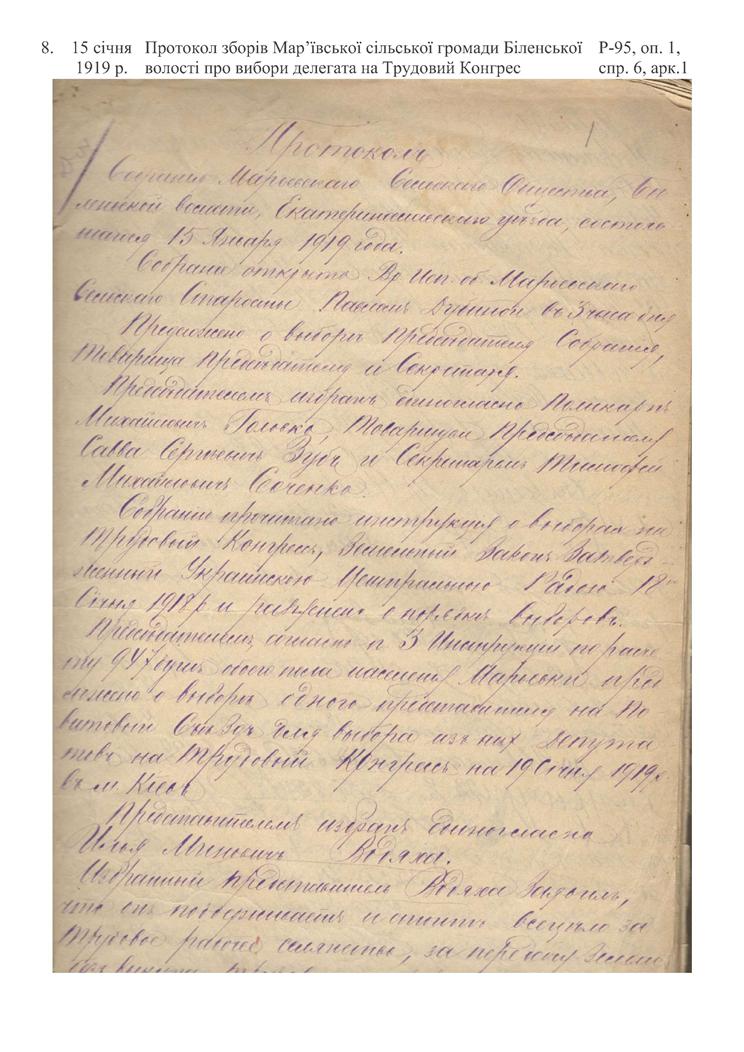 8. 15 січня 1919 р. Протокол зборів Мар’ївської сільської громади Біленської волості про вибори делегата на Трудовий Конгрес Р-95, оп. 1, спр. 6, арк.1
1
Протоколъ
Собрания Марьевскаго Сельскаго Общества, Би-
ленской волости, Екатеринославскаго уѣзда, состояв-
шагося 15 Января 1919 года.
Собрание открыто Вр. Исп. об. Марьевскаго
Сельскаго Старосты въ 3 часа дня
Предложено о выборѣ Председателя Собрания,
Товарища Председателя и Секретаря.
Председателемъ избранъ единогласно Поликарпъ
Михайловичъ Головко, Товарищем Председателя
Савва Сергѣевичъ Зубъ и Секретаремъ Тимофей
Михайловичъ Соченко.
Собранию прочитано инструкция о выборах на
Трудовый Конгрессъ, Земельный Законъ Затвер-
женный Украинскою Центральною Радою 18
Січня 1918 р и разъяснено о порядкѣ выборовъ.
Председателемъ, согласно п 3 Инструкции по расче-
ту 947 душъ обоего пола населения Марьевки пред-
ложено о выборѣ одного представителя на По-
витовый Съездъ для выбора изъ них депута-
товъ на Трудовый Конгрессъ на 19 Січня 1919 г.
въ м. Киевъ
Представителемъ избранъ единогласно
Илья Миновичъ Водяха.
Избранный представителем Водяха Заявилъ,
что он поддерживает и стоитъ всецело за
Трудовое рабочее селянство, за передачу Земли
безъ выкупа